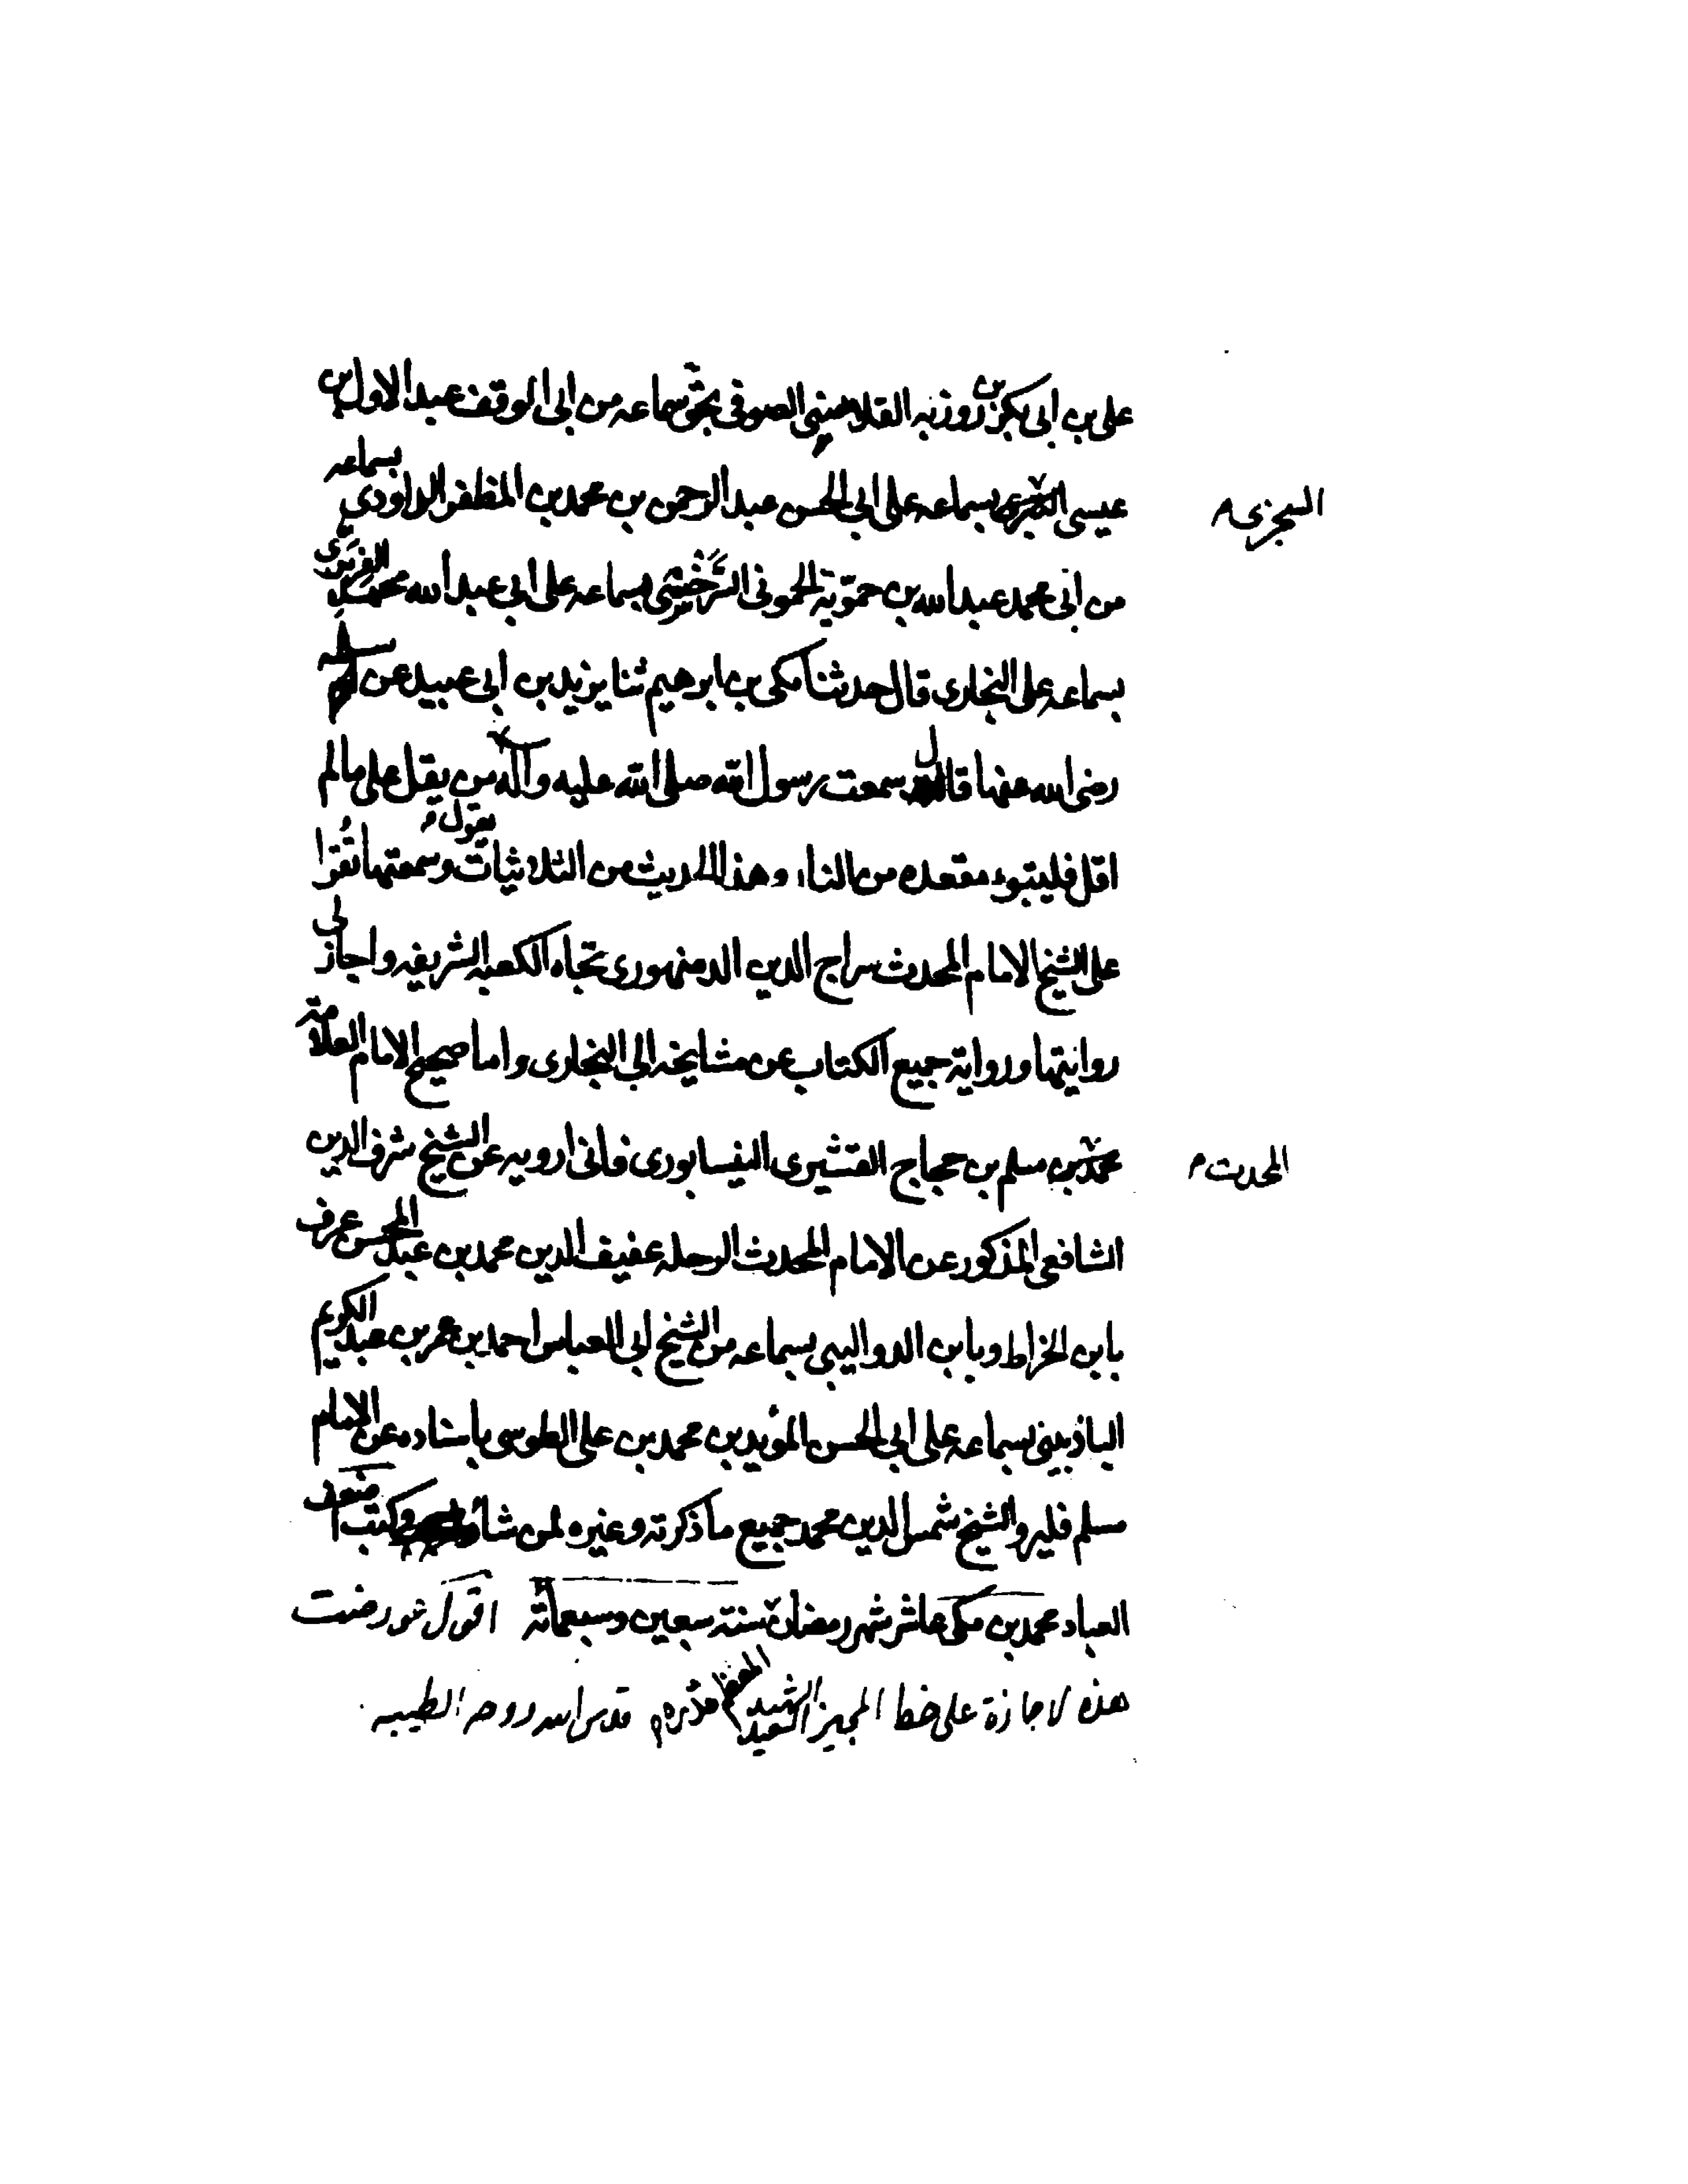 على بن ابى بكر بن روزبه القلانسى الصوفى بحق سماعه من ابى الوقف عبد الاول بن
عيسى السجزى بسماعه على ابى الحسن عبد الرحمن بن محمد بن المظفر الداودى بسماعه
السجزى م
من ابى محمد عبد الله بن حمّوية الحموى السَّرَخْسِى بسماعه على ابى عبد الله محمد الفربرى
بسماعه على البخارى قال حدثنا مكى بن ابرهيم ثنا يزيد بن ابى عبيد عن سلمه
رضى الله عنها قال سمعت رسول الله صلى الله عليه وآله يقول م من يقل على مالم
اقل فليتبوء مقعده من النار وهذا الحديث من الثلاثيات وسمعتها تُقرا
على الشيخ الامام المحدث سراج الدين الدمنهورى تجاه الكعبه الشريفه واجاز لى
روايتها ورواية جميع الكتاب عن مشايخه الى البخارى واما صحيح الامام العلامة
محمد بن مسلم بن حجاج القشيرى النيسابورى فانى ارويه عن الشيخ شرف الدين
المحدث م
الشافعى المذكور عن الامام المحدث الرحله عفيف الدين محمد بن عبد المحسن عرف
بابن الخراط وبابن الدواليبى بسماعه من الشيخ ابى العباس احمد بن عمر بن عبد الكريم
الباذبينى بسماعه على ابى الحسن المؤيد بن محمد بن على الطوسى باسناده عن الامام
مسلم فليرو الشيخ شمس الدين محمد جميع ما ذكرته وغيره لمن شاء وكتب اضعف
العباد محمد بن مكى عاشر شهر رمضان سنة سبعين وسبعمائة اقول عورضت
هذه الاجازة على خط المجيز الشهيد السعيد قدس الله روحه الطيبه